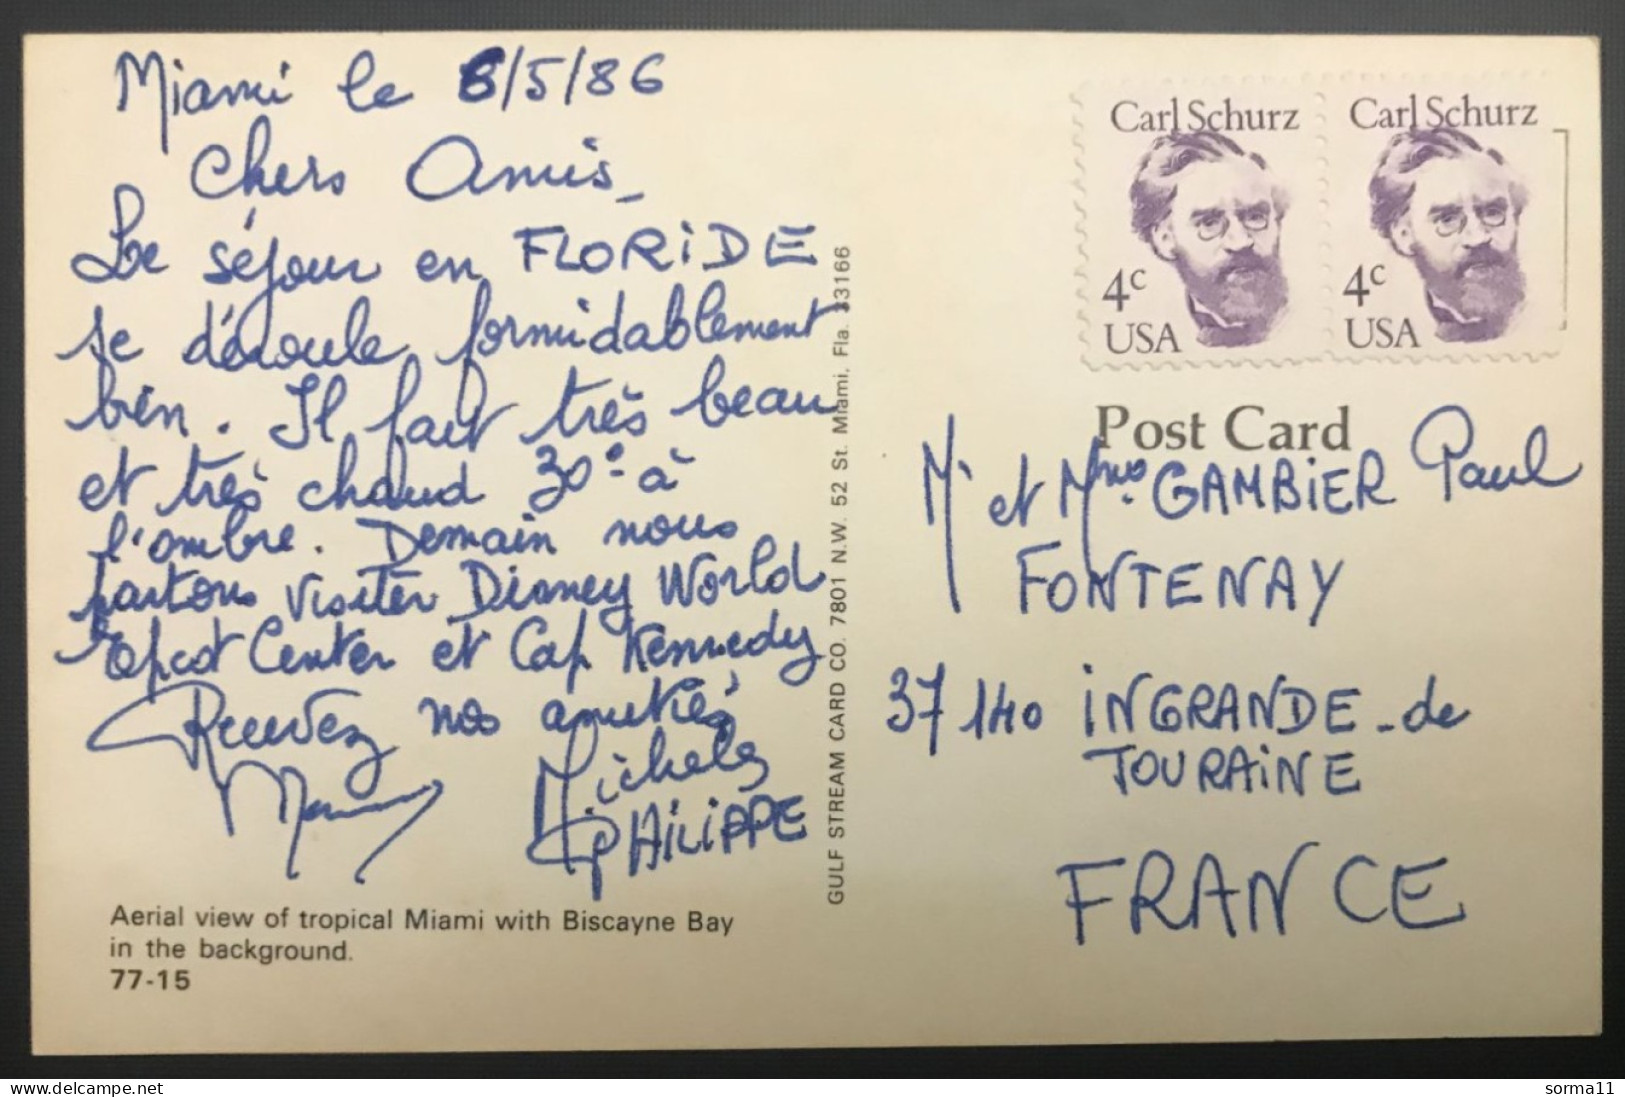 Miami le 6/5/86
Chers Amis_
Le séjour en FLORiDE
se déroule formidablement
bien. Il fait très beau
et très chaud 30° à
l'ombre. Demain nous
partons visiter Disney World
Epcot Center et Cap Kennedy
Recevez nos amitiés
Michele
PHiLiPPE
Aerial view of tropical Miami with Biscayne Bay
in the background.
77-15
GULF STREAM CARD CO. 7801 N.W. 52 St. Miami, Fla. 33166
Carl Schurz
4c
USA
Carl Schurz
4c
USA
Post Card
Mr et Mme GAMBiER Paul
FONTENAY
37140 iNGRANDE-de
TOURAiNE
FRANCE
www.delcampe.net
sorma11